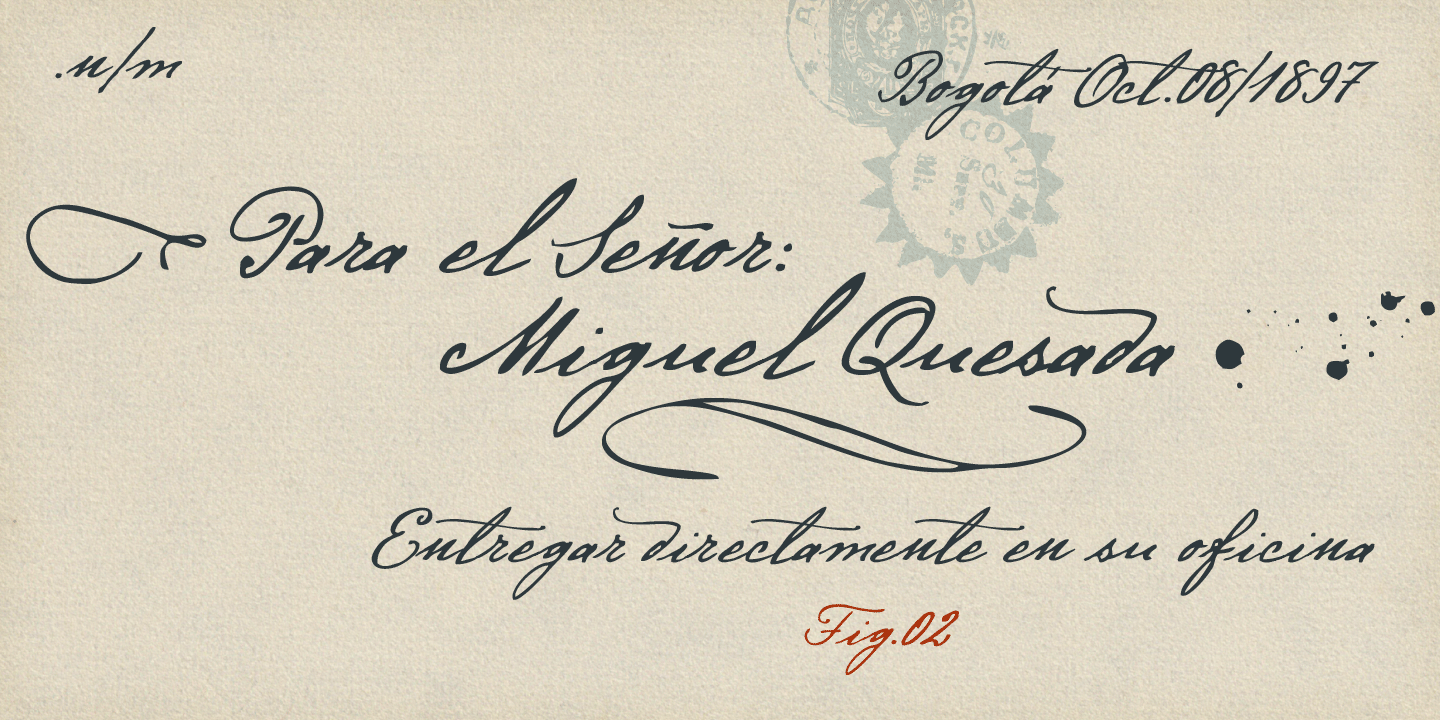 .n/m
Bogotá Oct.08/1897
Para el Señor:
Miguel Quesada
Entregar directamente en su oficina
Fig.02